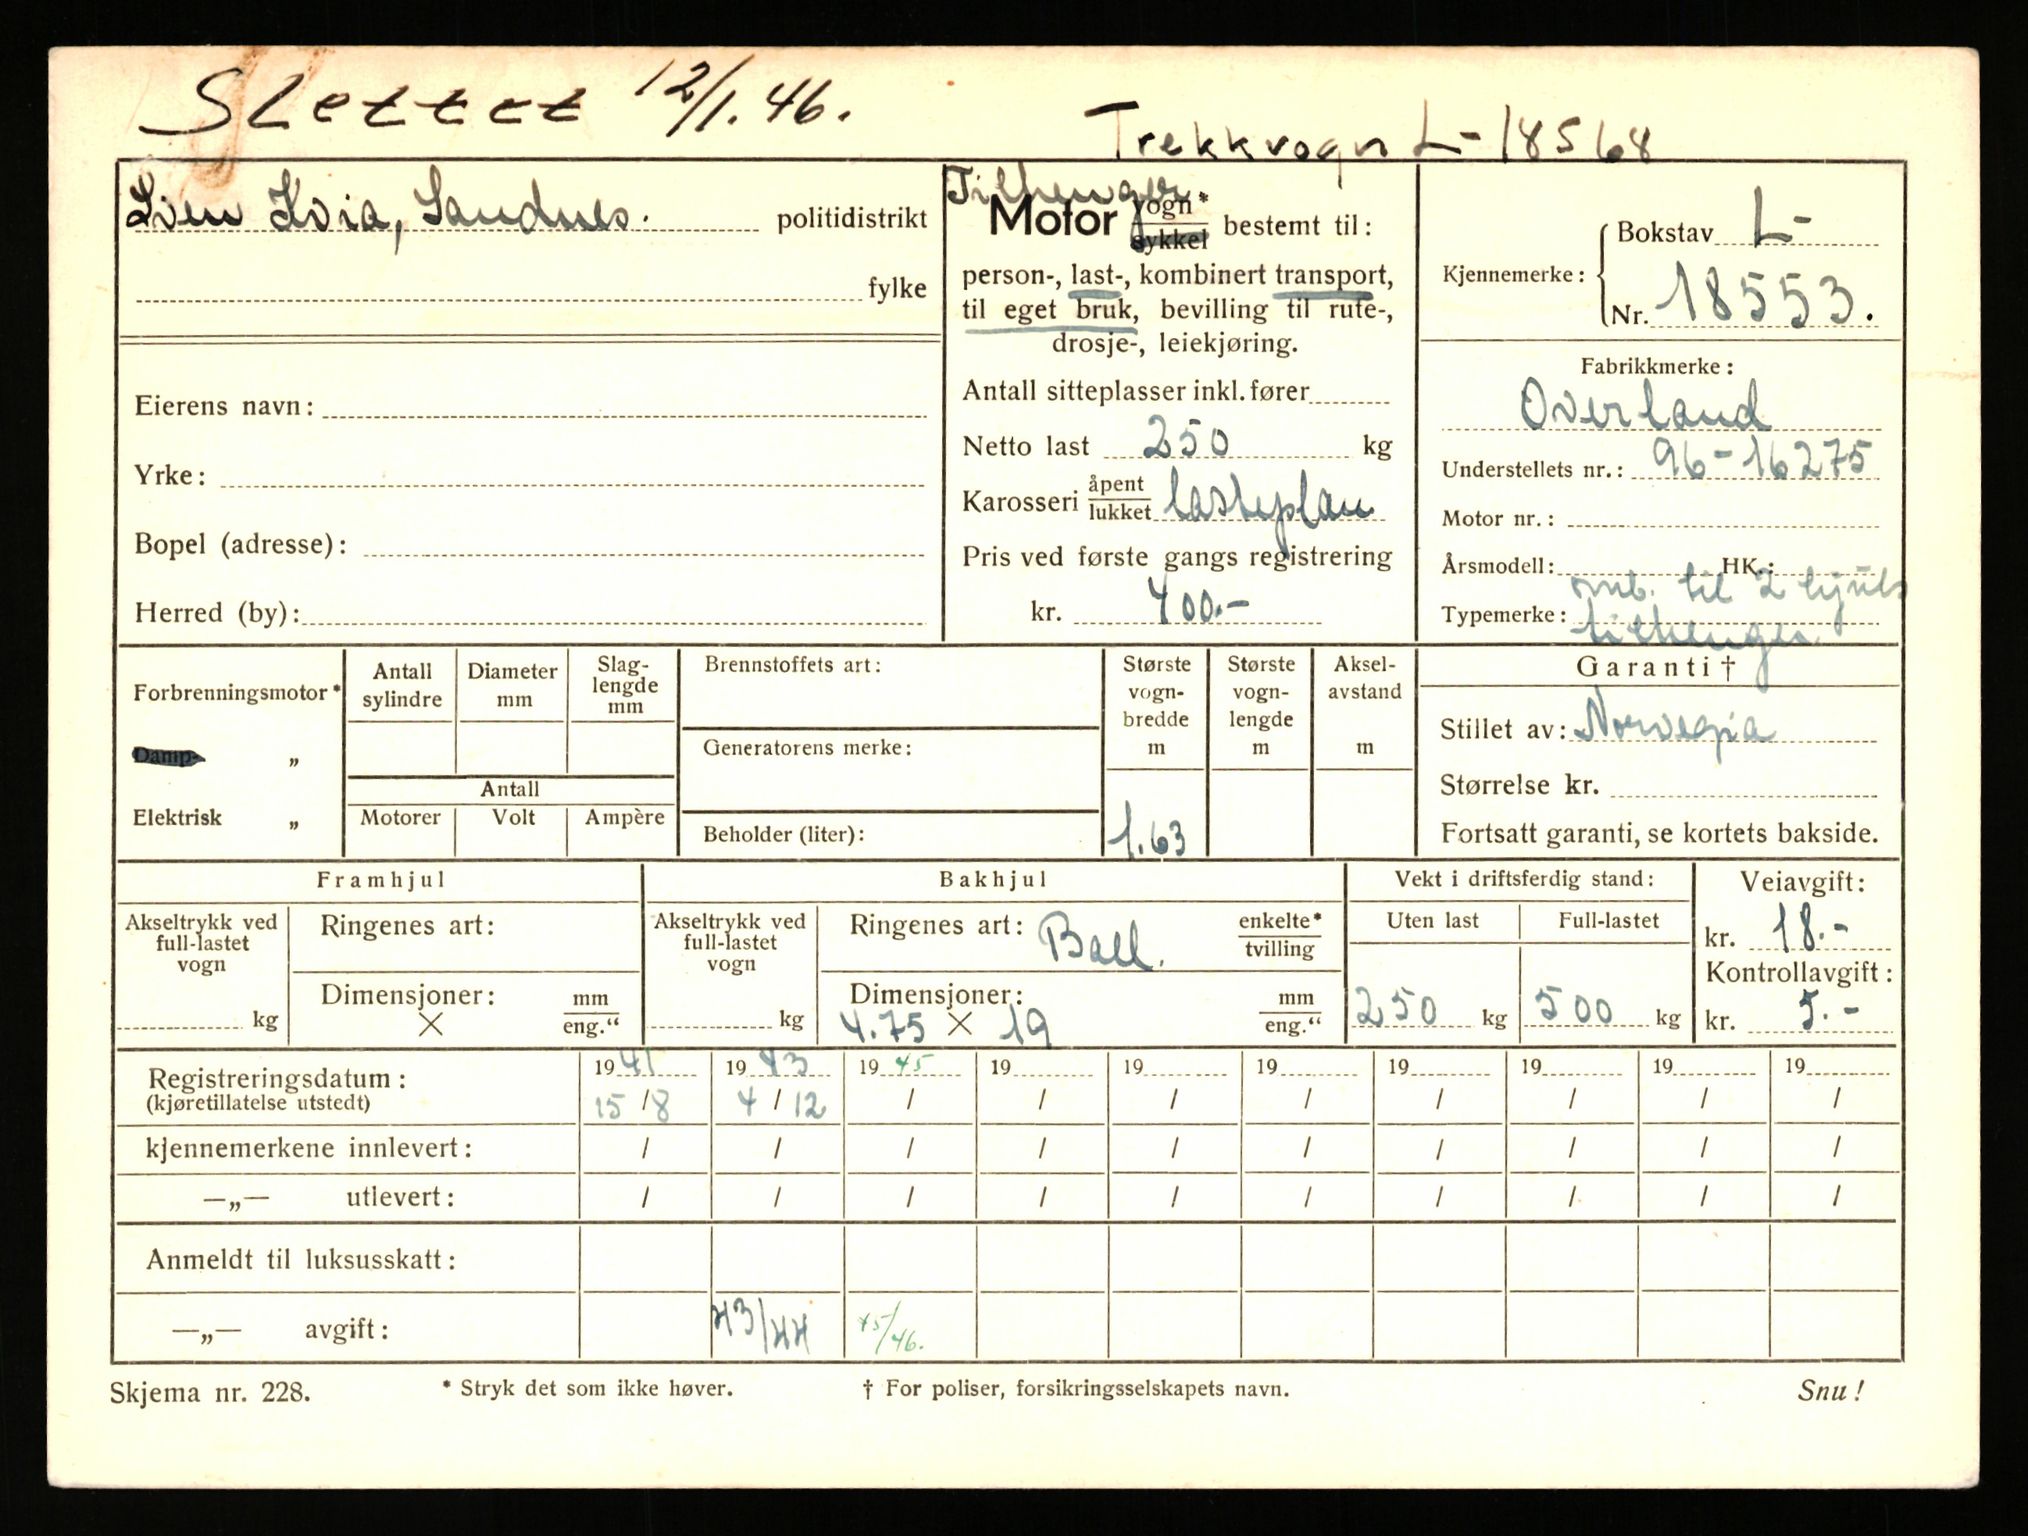 Slettet 12/1.46.
Trekkvogn L-18568
Sven Kvia, Sandnes. politidistrikt
fylke
Eierens navn:
Yrke:
Bopel (adresse):
Herred (by):
Tilhenger
Motor vogn* sykkel bestemt til:
person-, last-, kombinert transport,
til eget bruk, bevilling til rute-,
drosje-, leiekjøring.
Antall sitteplasser inkl. fører
Netto last 250 kg
Karosseri åpent lukket lasteplan
Pris ved første gangs registrering
kr. 400.-
Kjennemerke: Bokstav L-
Nr. 18553.
Fabrikkmerke:
Overland
Understellets nr.: 96-16275
Motor nr.:
Årsmodell: HK.:
omb. til 2 hjuls
Typemerke: tilhenger.
Forbrenningsmotor*
Damp- „
Elektrisk „
Antall sylindre
Diameter mm
Slag-lengde mm
Antall
Motorer Volt Ampère
Brennstoffets art:
Generatorens merke:
Beholder (liter):
Største vogn-bredde m
1.63
Største vogn-lengde m
Aksel-avstand m
Garanti †
Stillet av: Norvegia
Størrelse kr.
Fortsatt garanti, se kortets bakside.
Framhjul
Akseltrykk ved full-lastet vogn
kg
Ringenes art:
Dimensjoner: mm
× eng.“
Bakhjul
Akseltrykk ved full-lastet vogn
kg
Ringenes art: Ball. enkelte* tvilling
Dimensjoner: mm
4.75 × 19 eng.“
Vekt i driftsferdig stand:
Uten last Full-lastet
250 kg 500 kg
Veiavgift:
kr. 18.-
Kontrollavgift:
kr. 5.-
Registreringsdatum: 1941 1943 1945 19 19 19 19 19 19 19
(kjøretillatelse utstedt) 15/8 4/12 / / / / / / / /
kjennemerkene innlevert: / / / / / / / / / /
—„— utlevert: / / / / / / / / / /
Anmeldt til luksusskatt:
—„— avgift: 43/44 45/46.
Skjema nr. 228. * Stryk det som ikke høver. † For poliser, forsikringsselskapets navn. Snu!